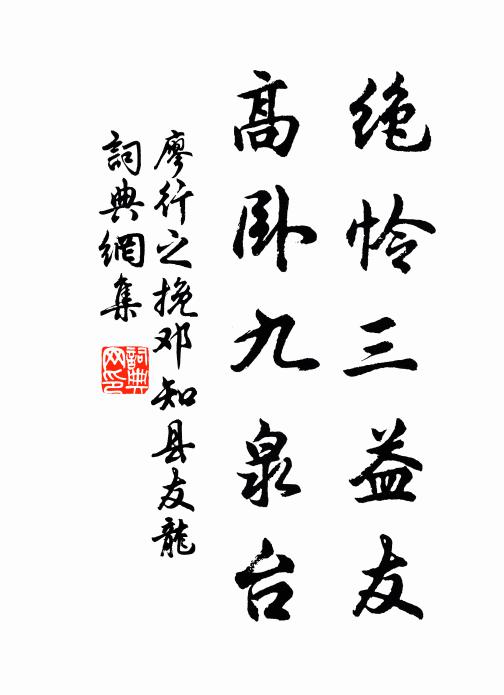 绝怜三益友
高卧九泉台
廖行之挽邓知县友龍
詞典網集
詞典
网印